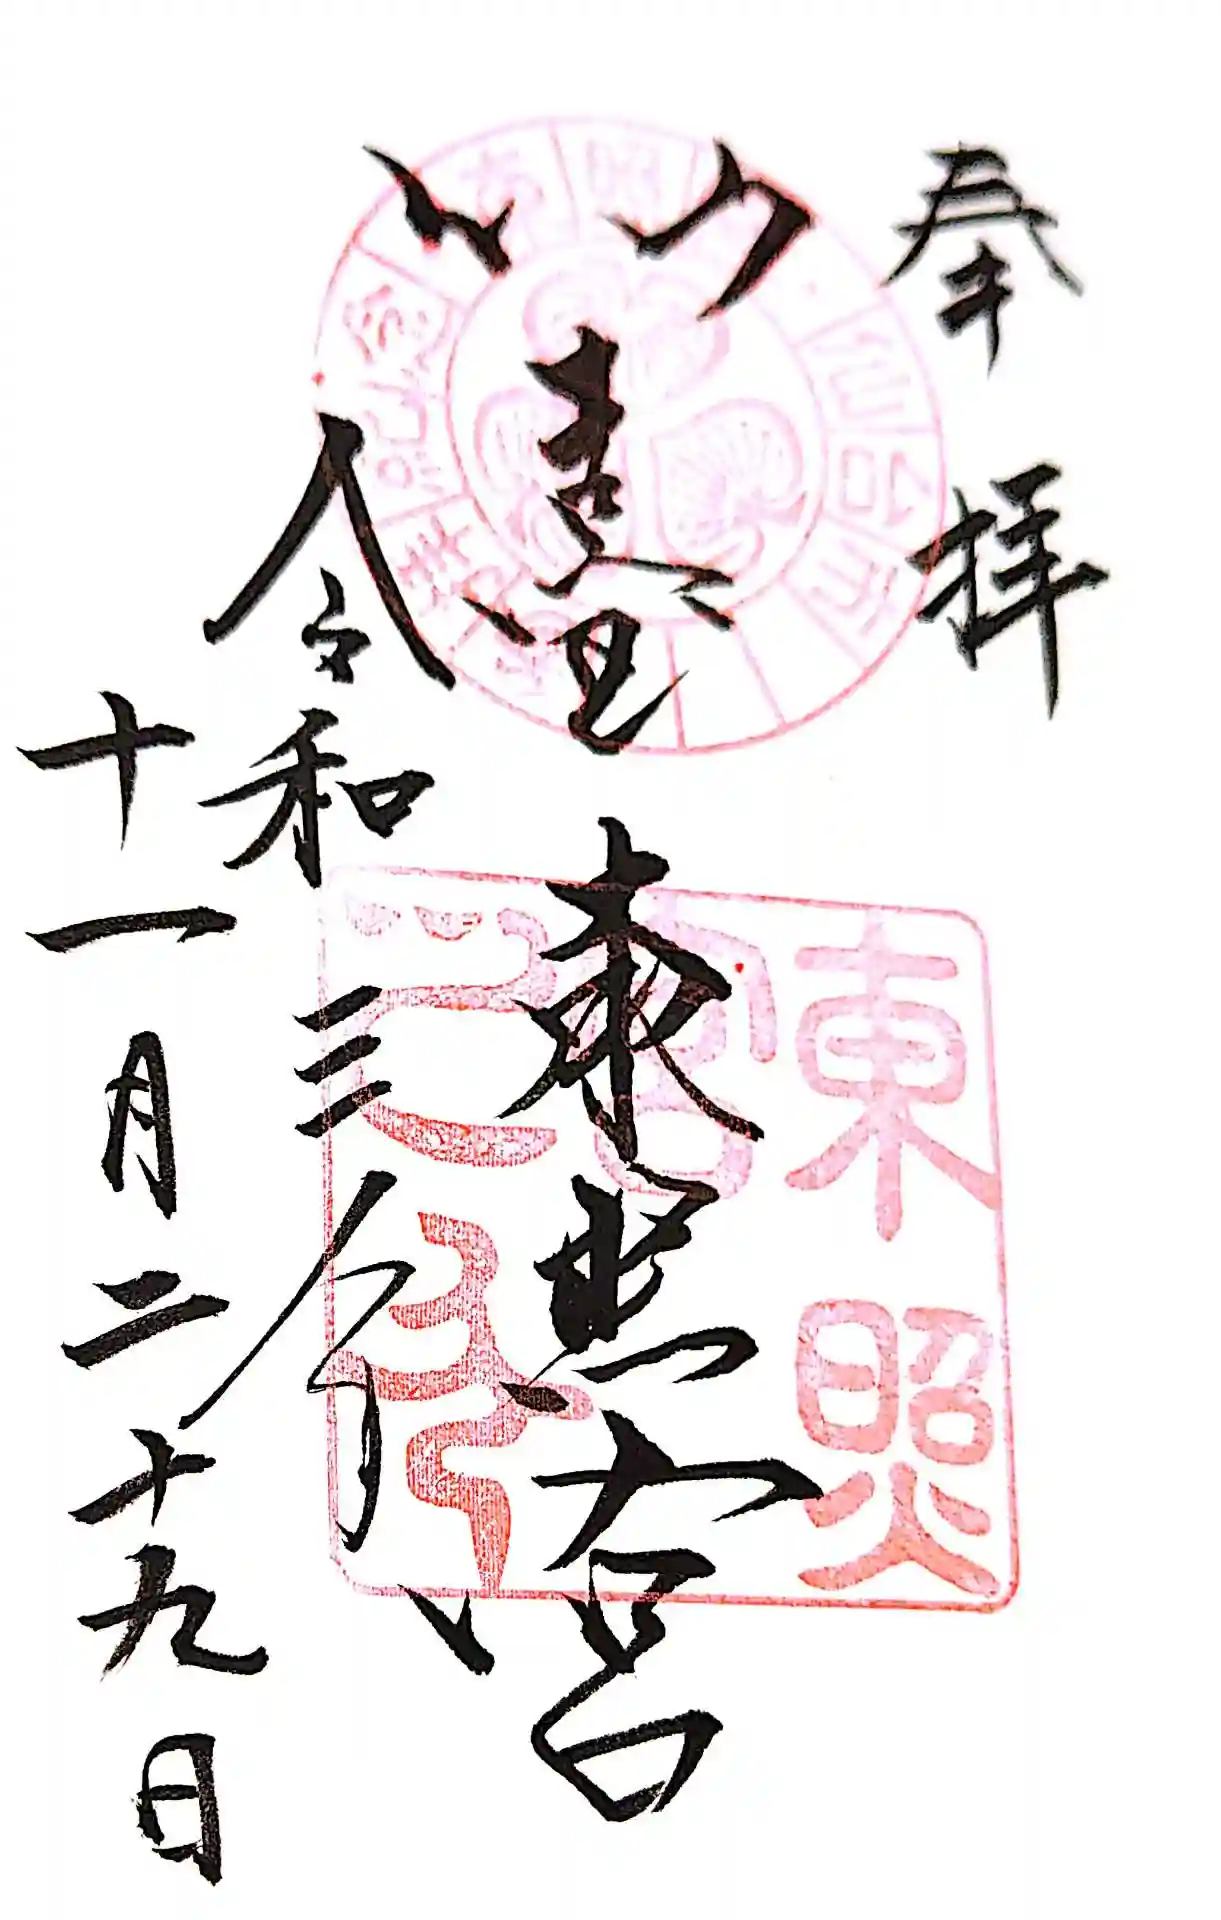 奉拝
仙臺東照宮
令和三年
十一月二十九日
東照
宮
之印